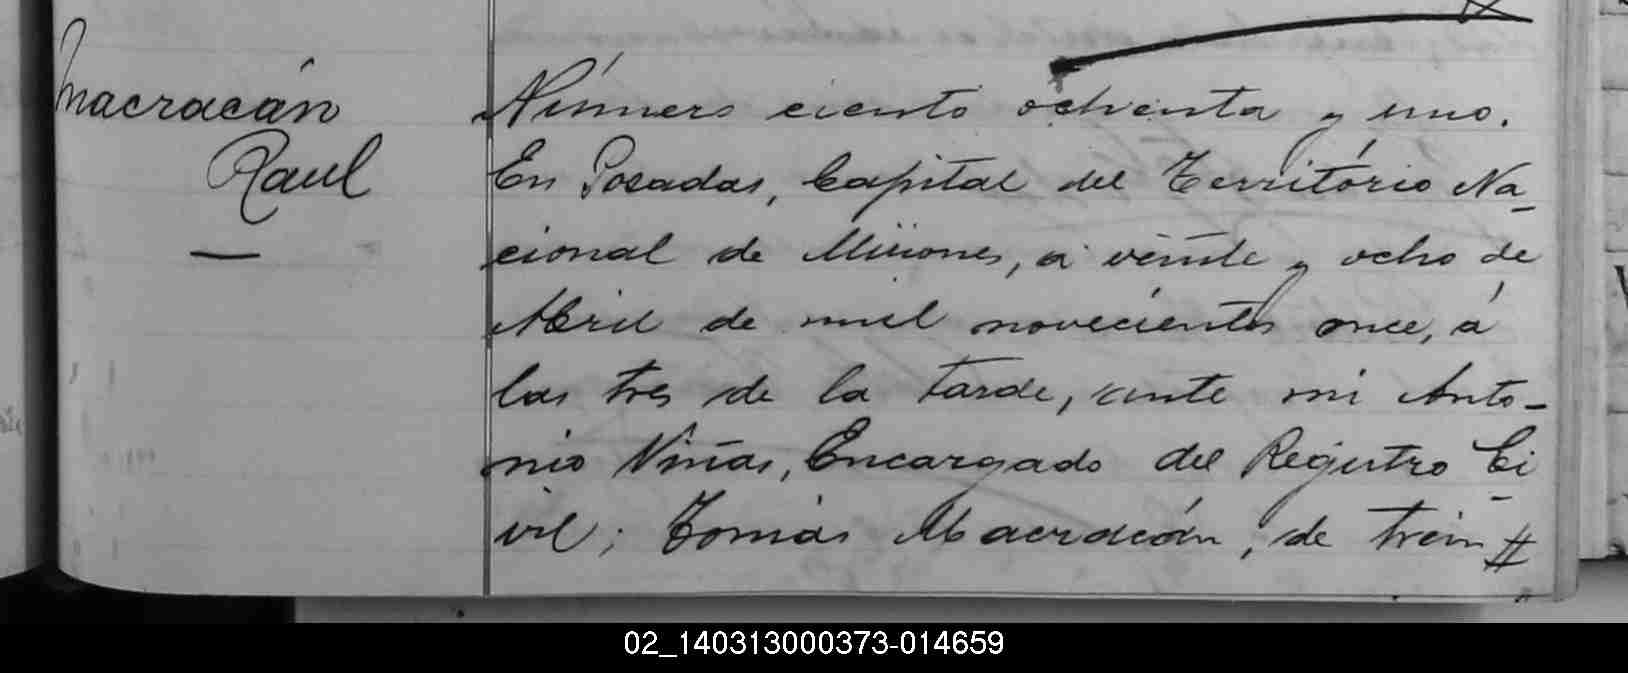 Macracán
Raul
Número ciento ochenta y uno.
En Posadas, Capital del Território Na
cional de Misiones, á veinte y ocho de
Abril de mil novecientos once, á
las tres de la tarde, ante mi Anto-
nio Viñas, Encargado del Registro Ci
vil; Tomás Macracán, de trein
02_140313000373-014659